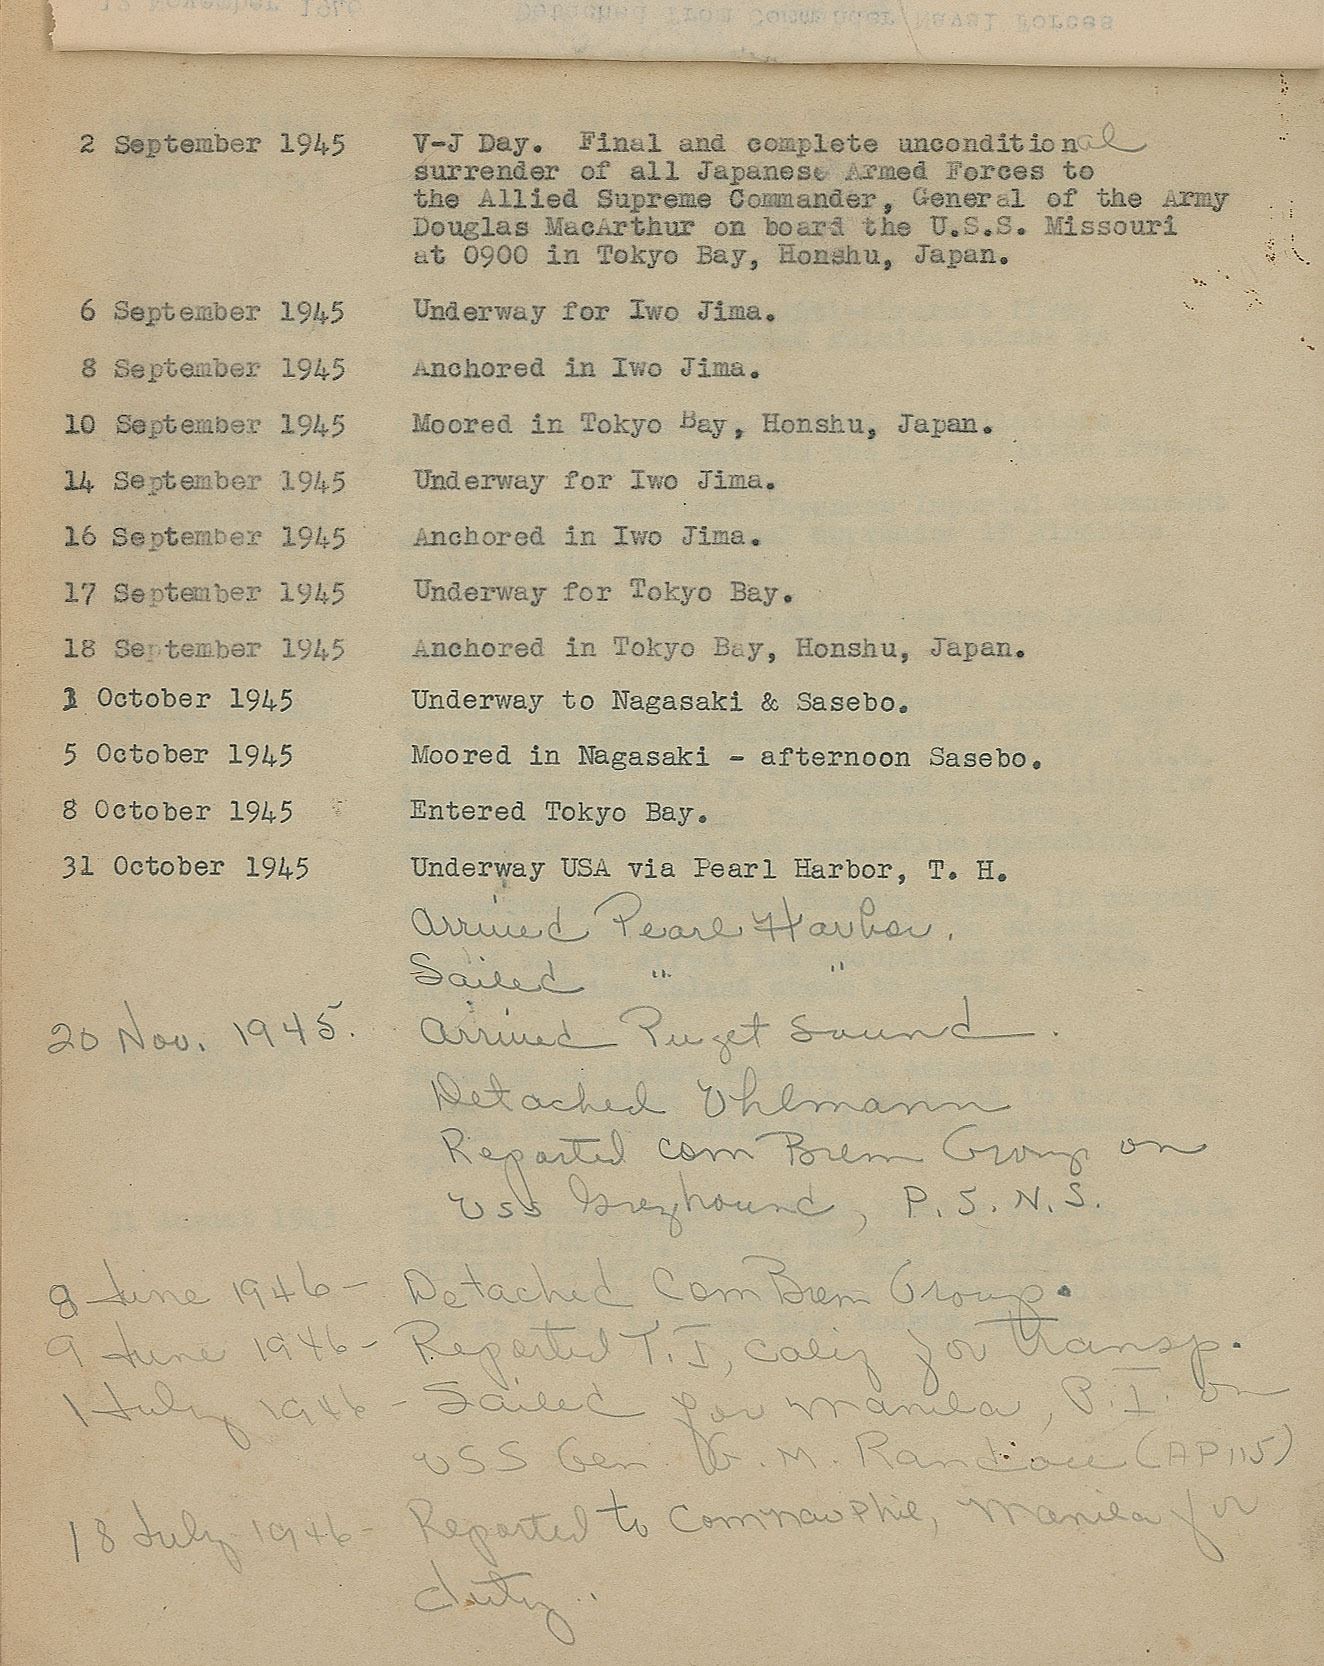 2 September 1945 V-J Day. Final and complete unconditional
surrender of all Japanese Armed Forces to
the Allied Supreme Commander, General of the Army
Douglas MacArthur on board the U.S.S. Missouri
at 0900 in Tokyo Bay, Honshu, Japan.
6 September 1945 Underway for Iwo Jima.
8 September 1945 Anchored in Iwo Jima.
10 September 1945 Moored in Tokyo Bay, Honshu, Japan.
14 September 1945 Underway for Iwo Jima.
16 September 1945 Anchored in Iwo Jima.
17 September 1945 Underway for Tokyo Bay.
18 September 1945 Anchored in Tokyo Bay, Honshu, Japan.
October 1945 Underway to Nagasaki & Sasebo.
5 October 1945 Moored in Nagasaki - afternoon Sasebo.
8 October 1945 Entered Tokyo Bay.
31 October 1945 Underway USA via Pearl Harbor, T. H.
Arrived Pearl Harbor.
Sailed " "
20 Nov. 1945. Arrived Puget Sound.
Detached Uhlmann
Reported Com Brem Group on
USS Greyhound, P.S.N.S.
8 June 1946 - Detached Com Brem Group.
9 June 1946 - Reported T.I, Calif for transp.
1 July 1946 - Sailed for Manila, P.I. on
USS Gen. G. M. Randall (AP115)
18 July 1946 - Reported to ComNavPhil, Manila for
duty.